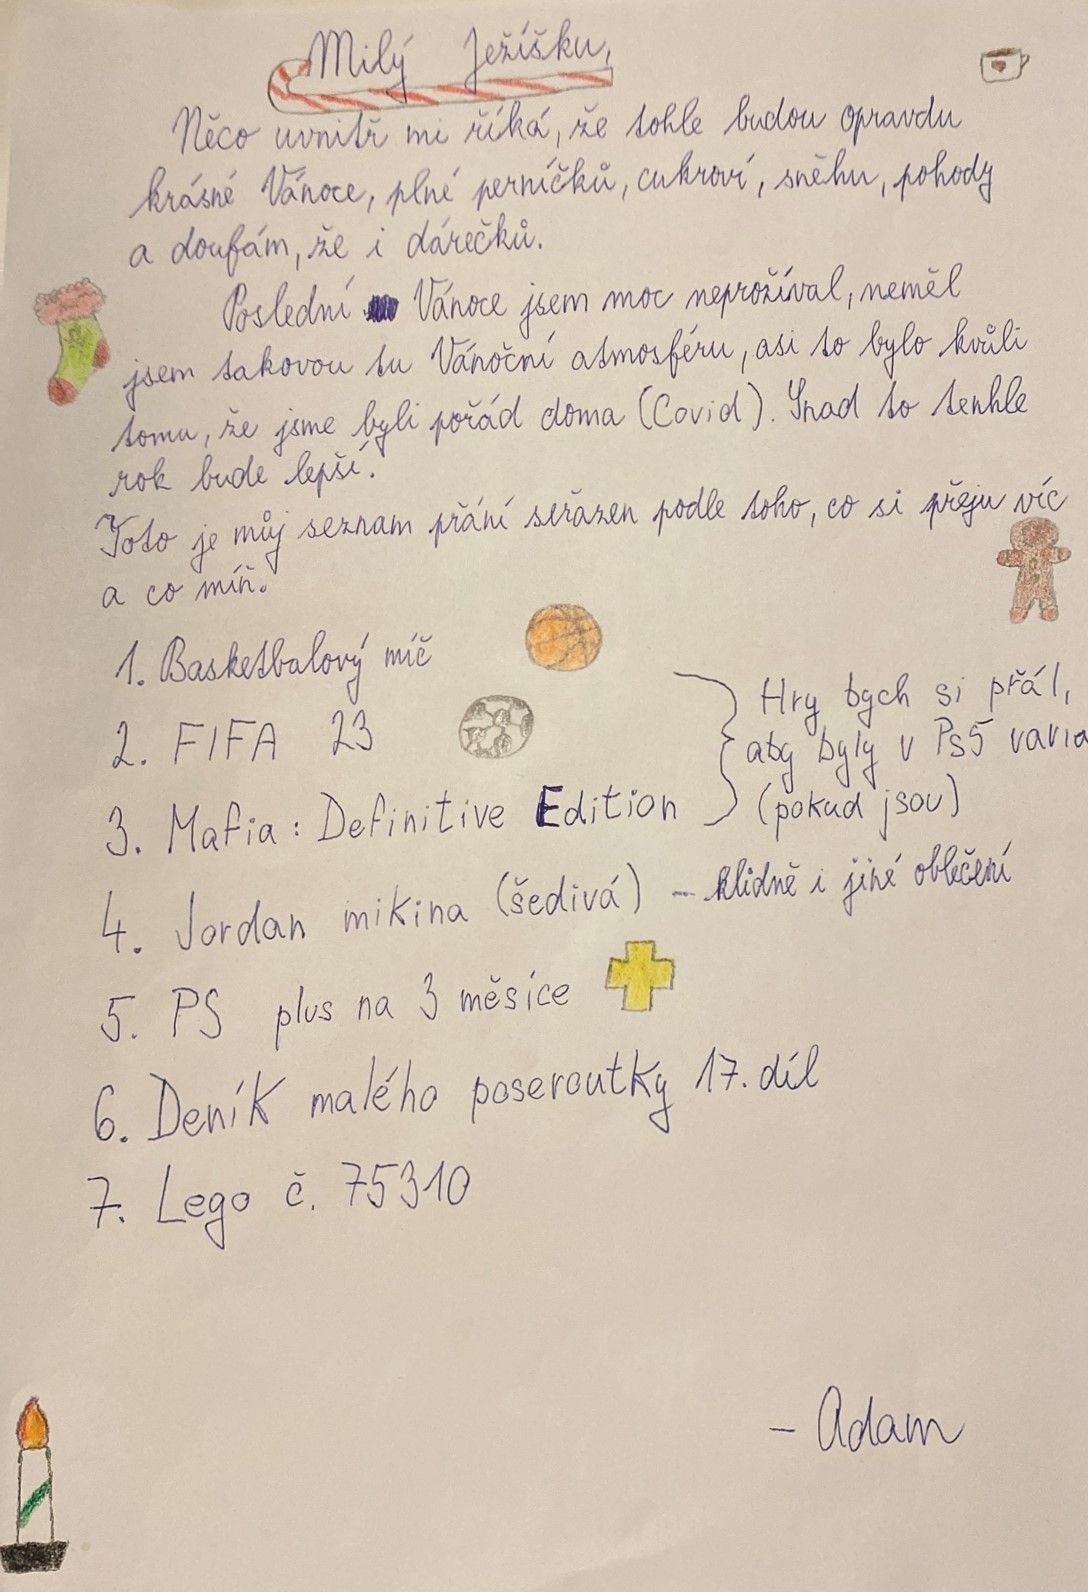 Milý Ježíšku,
Něco uvnitř mi říká, že tohle budou opravdu
krásné Vánoce, plné perníčků, cukroví, sněhu, pohody
a doufám, že i dárečků.
Poslední Vánoce jsem moc neprožíval, neměl
jsem takovou tu Vánoční atmosféru, asi to bylo kvůli
tomu, že jsme byli pořád doma (Covid). Snad to tenhle
rok bude lepší.
Toto je můj seznam přání seřazen podle toho, co si přeju víc
a co míň.
1. Basketbalový míč
2. FIFA 23
3. Mafia: Definitive Edition
Hry bych si přál,
aby byly v Ps5 varia
(pokud jsou)
4. Jordan mikina (šedivá) - klidně i jiné oblečení
5. PS plus na 3 měsíce
6. Deník malého poseroutky 17. díl
7. Lego č. 75310
- Adam